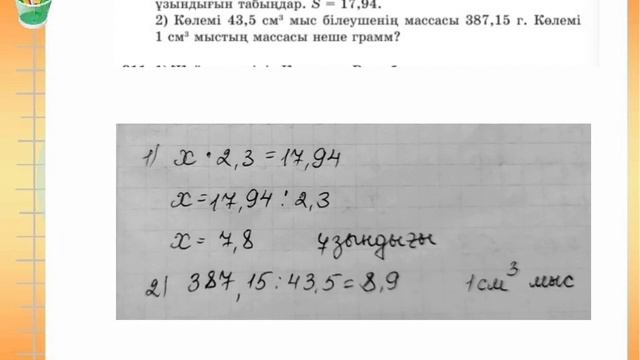 ұзындығын табыңдар. S = 17,94.
2) Көлемі 43,5 см³ мыс білеушенің массасы 387,15 г. Көлемі
1 см³ мыстың массасы неше грамм?
1) x · 2,3 = 17,94
x = 17,94 : 2,3
x = 7,8 ұзындығы
2) 387,15 : 43,5 = 8,9 1 см³ мыс